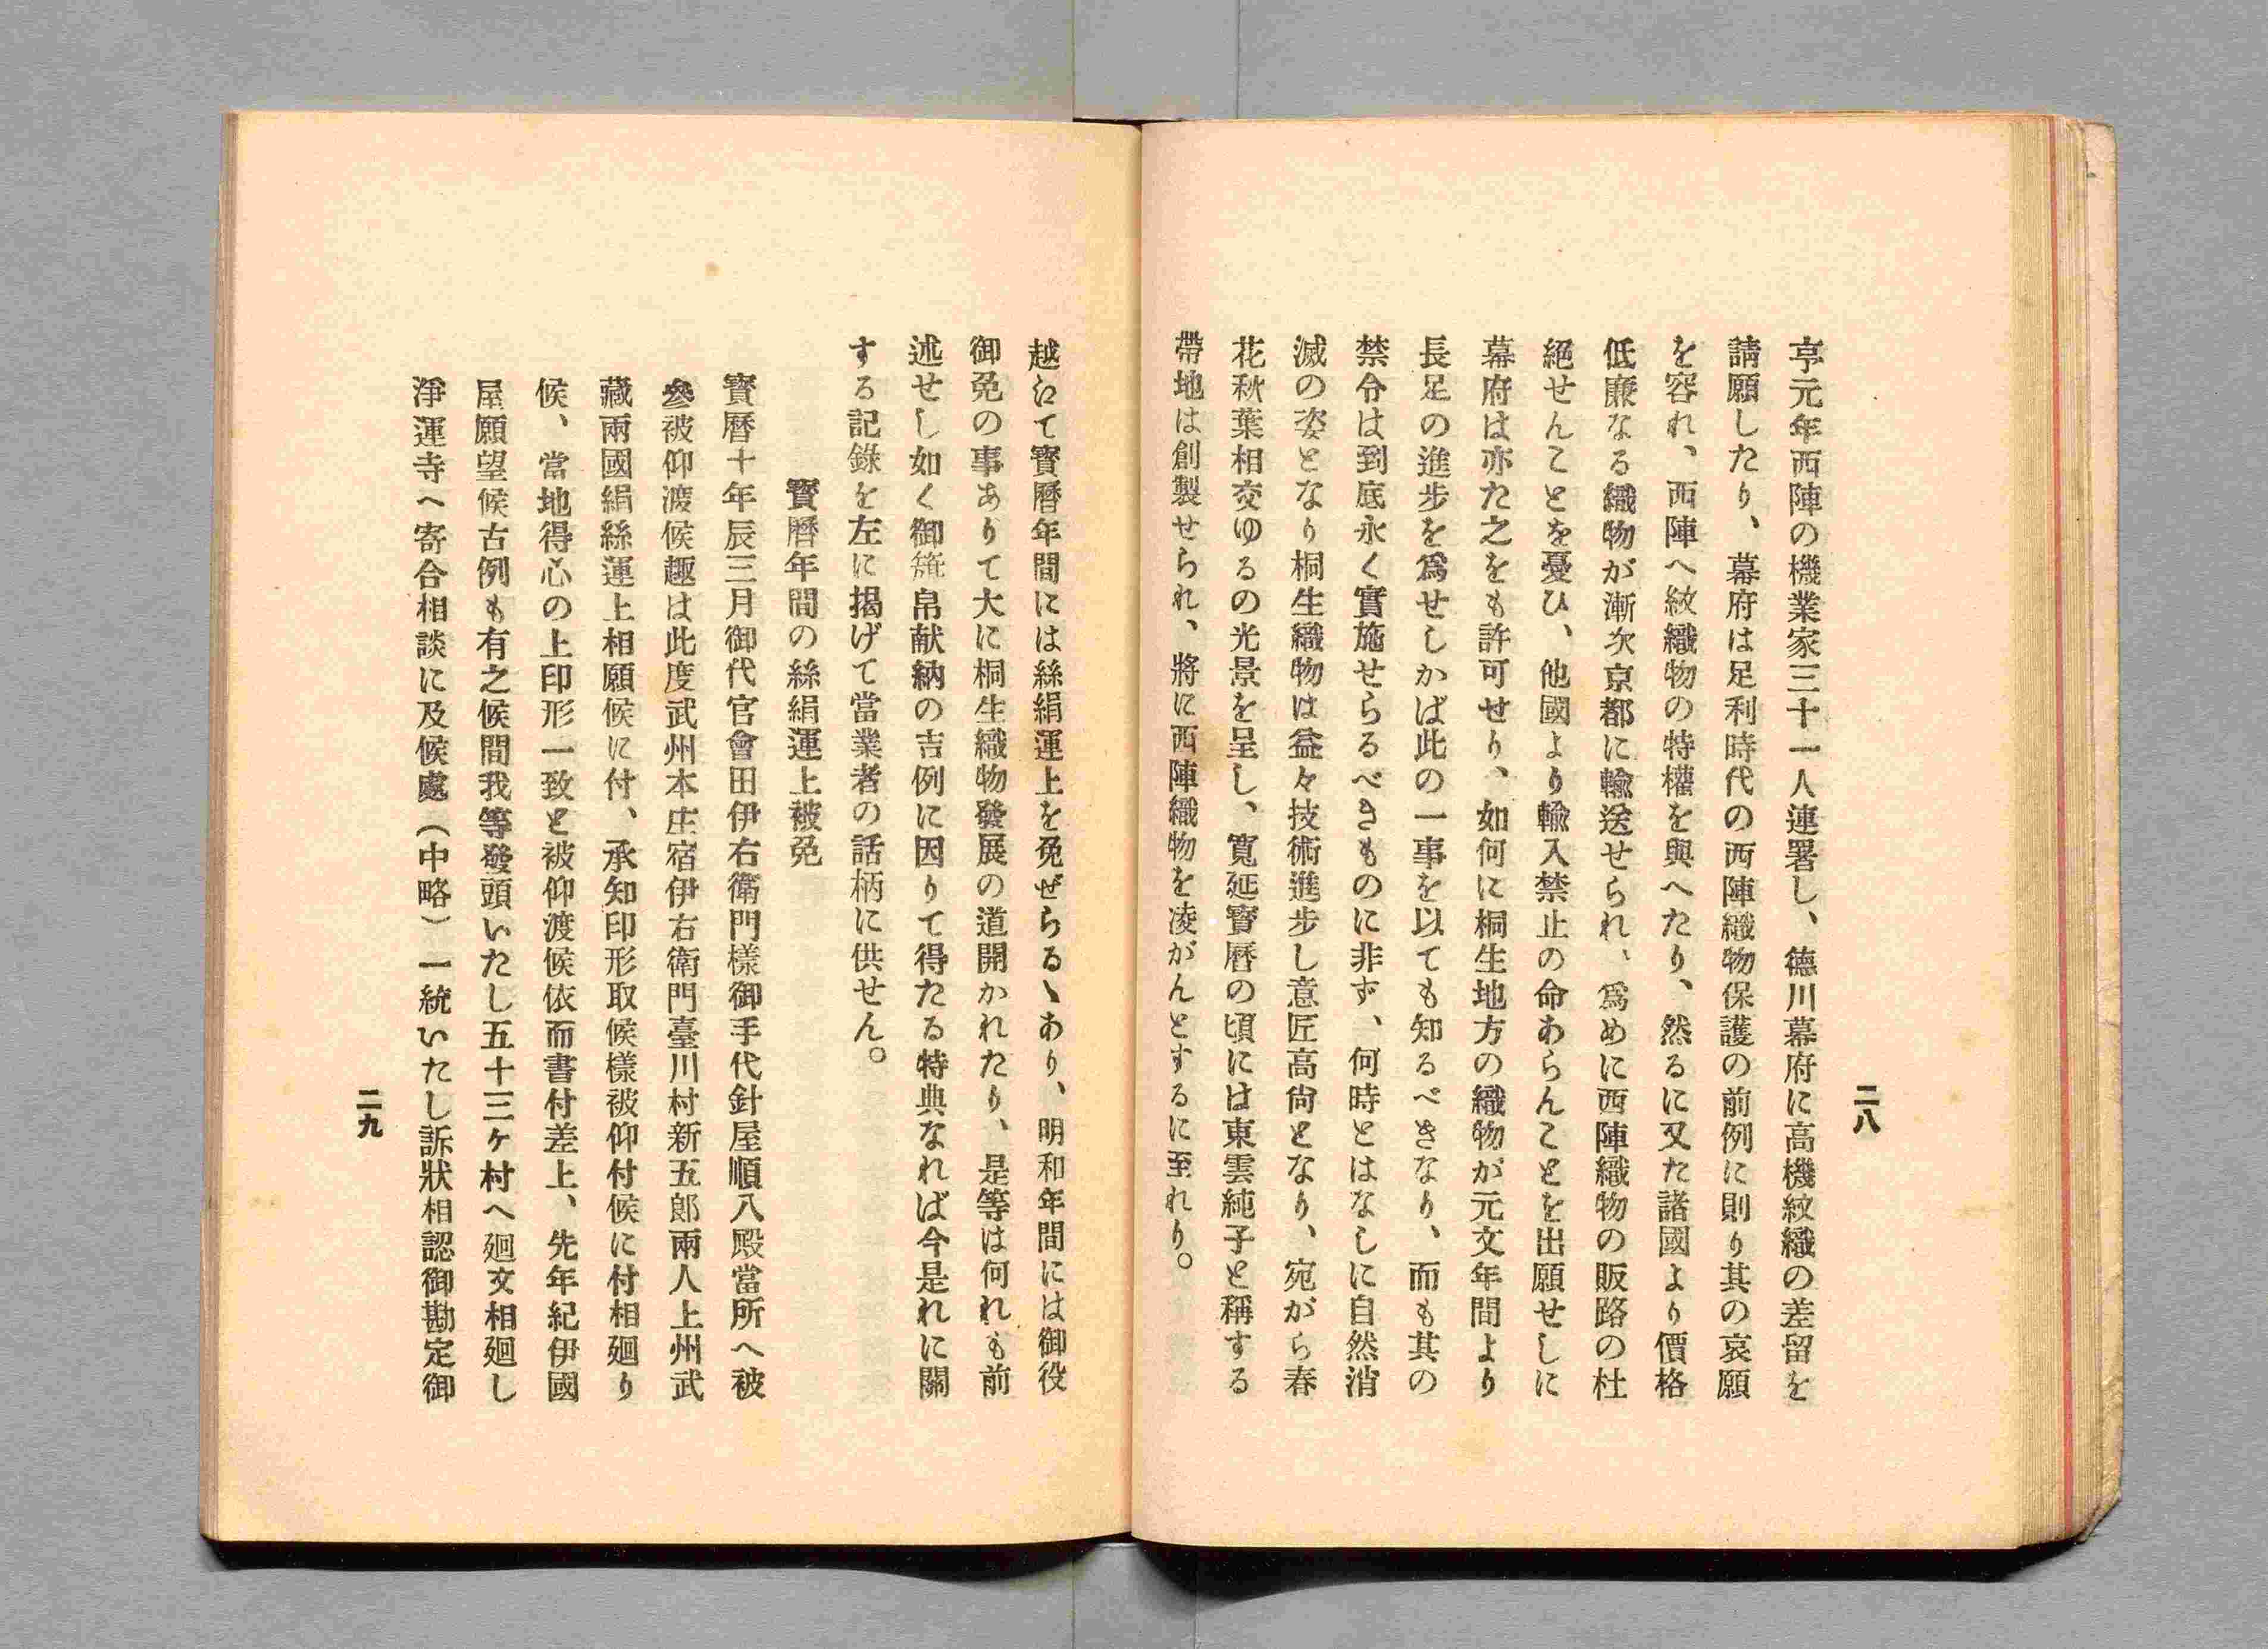 二八
享元年西陣の機業家三十一人連署し、德川幕府に高機紋織の差留を
請願したり、幕府は足利時代の西陣織物保護の前例に則り其の哀願
を容れ、西陣へ紋織物の特權を與へたり、然るに又た諸國より價格
低廉なる織物が漸次京都に輸送せられ、爲めに西陣織物の販路の杜
絕せんことを憂ひ、他國より輸入禁止の命あらんことを出願せしに
幕府は亦た之をも許可せり、如何に桐生地方の織物が元文年間より
長足の進步を爲せしかば此の一事を以ても知るべきなり、而も其の
禁令は到底永く實施せらるべきものに非ず、何時とはなしに自然消
滅の姿となり桐生織物は益々技術進步し意匠高尙となり、宛がら春
花秋葉相交ゆるの光景を呈し、寬延寶曆の頃には東雲純子と稱する
帶地は創製せられ、將に西陣織物を凌がんとするに至れり。
越江て寶曆年間には絲絹運上を免ぜらるゝあり、明和年間には御役
御免の事ありて大に桐生織物發展の道開かれたり、是等は何れも前
述せし如く御籏帛献納の吉例に因りて得たる特典なれば今是れに關
する記錄を左に揭げて當業者の話柄に供せん。
寶曆年間の絲絹運上被免
寶曆十年辰三月御代官會田伊右衞門樣御手代針屋順八殿當所へ被
參被仰渡候趣は此度武州本庄宿伊右衞門臺川村新五郎兩人上州武
藏兩國絹絲運上相願候に付、承知印形取候樣被仰付候に付相廻り
候、當地得心の上印形一致と被仰渡候依而書付差上、先年紀伊國
屋願望候古例も有之候間我等發頭いたし五十三ヶ村へ廻文相廻し
淨運寺へ寄合相談に及候處（中略）一統いたし訴狀相認御勘定御
二九